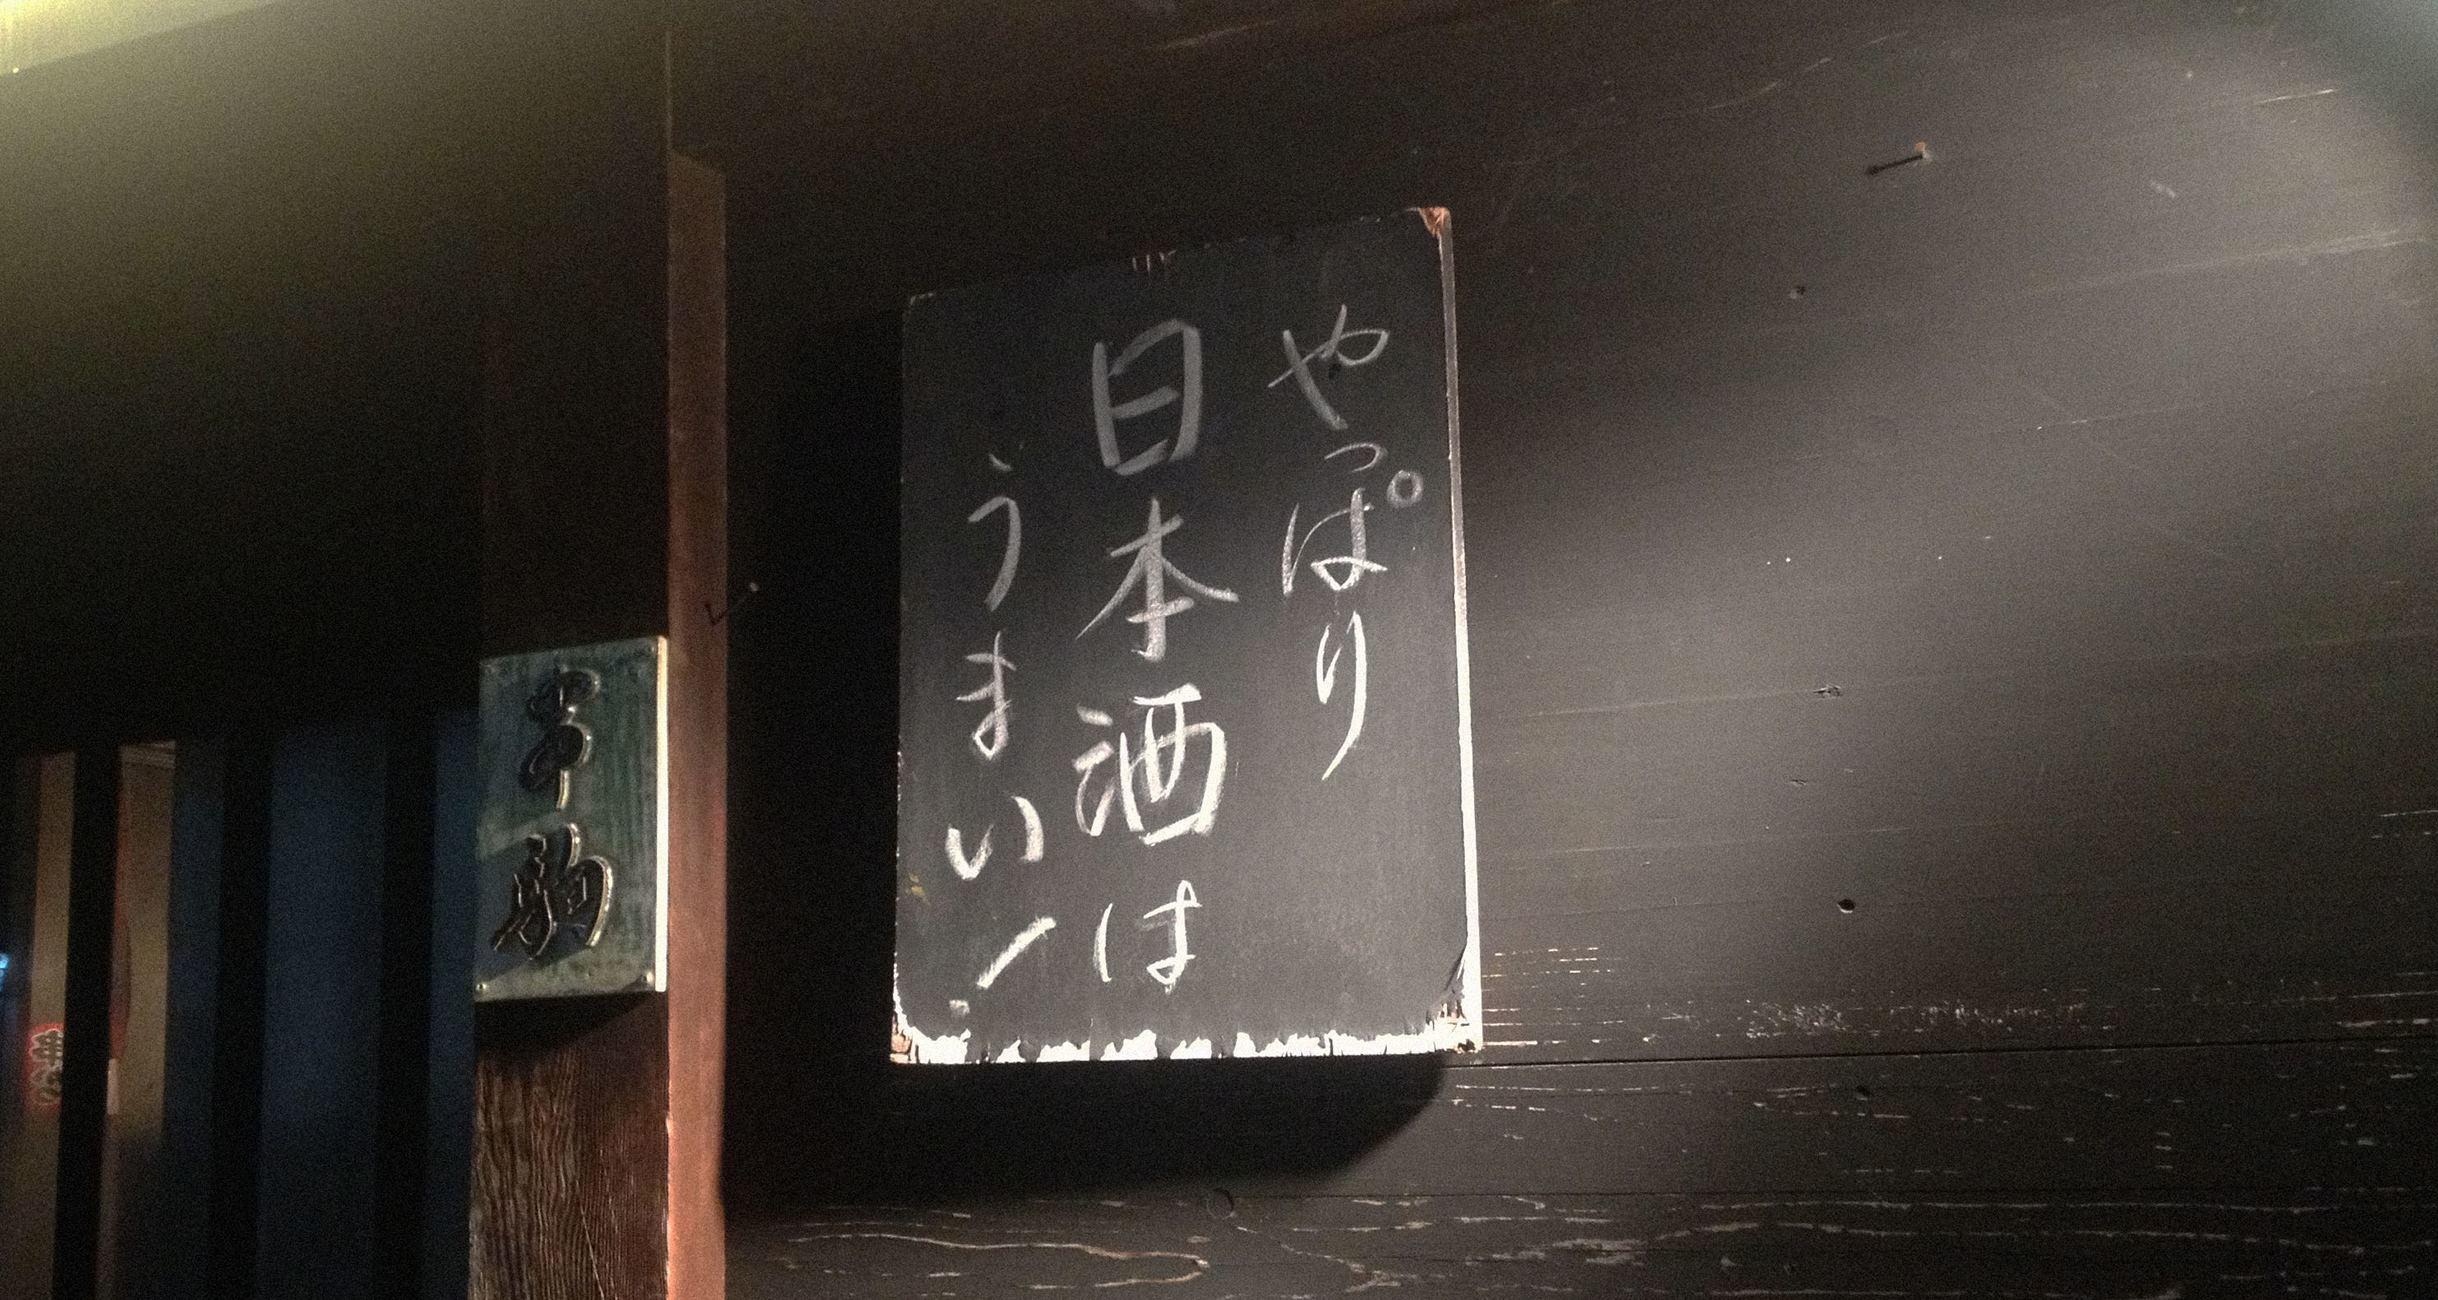 やっぱり
日本酒は
うまい!